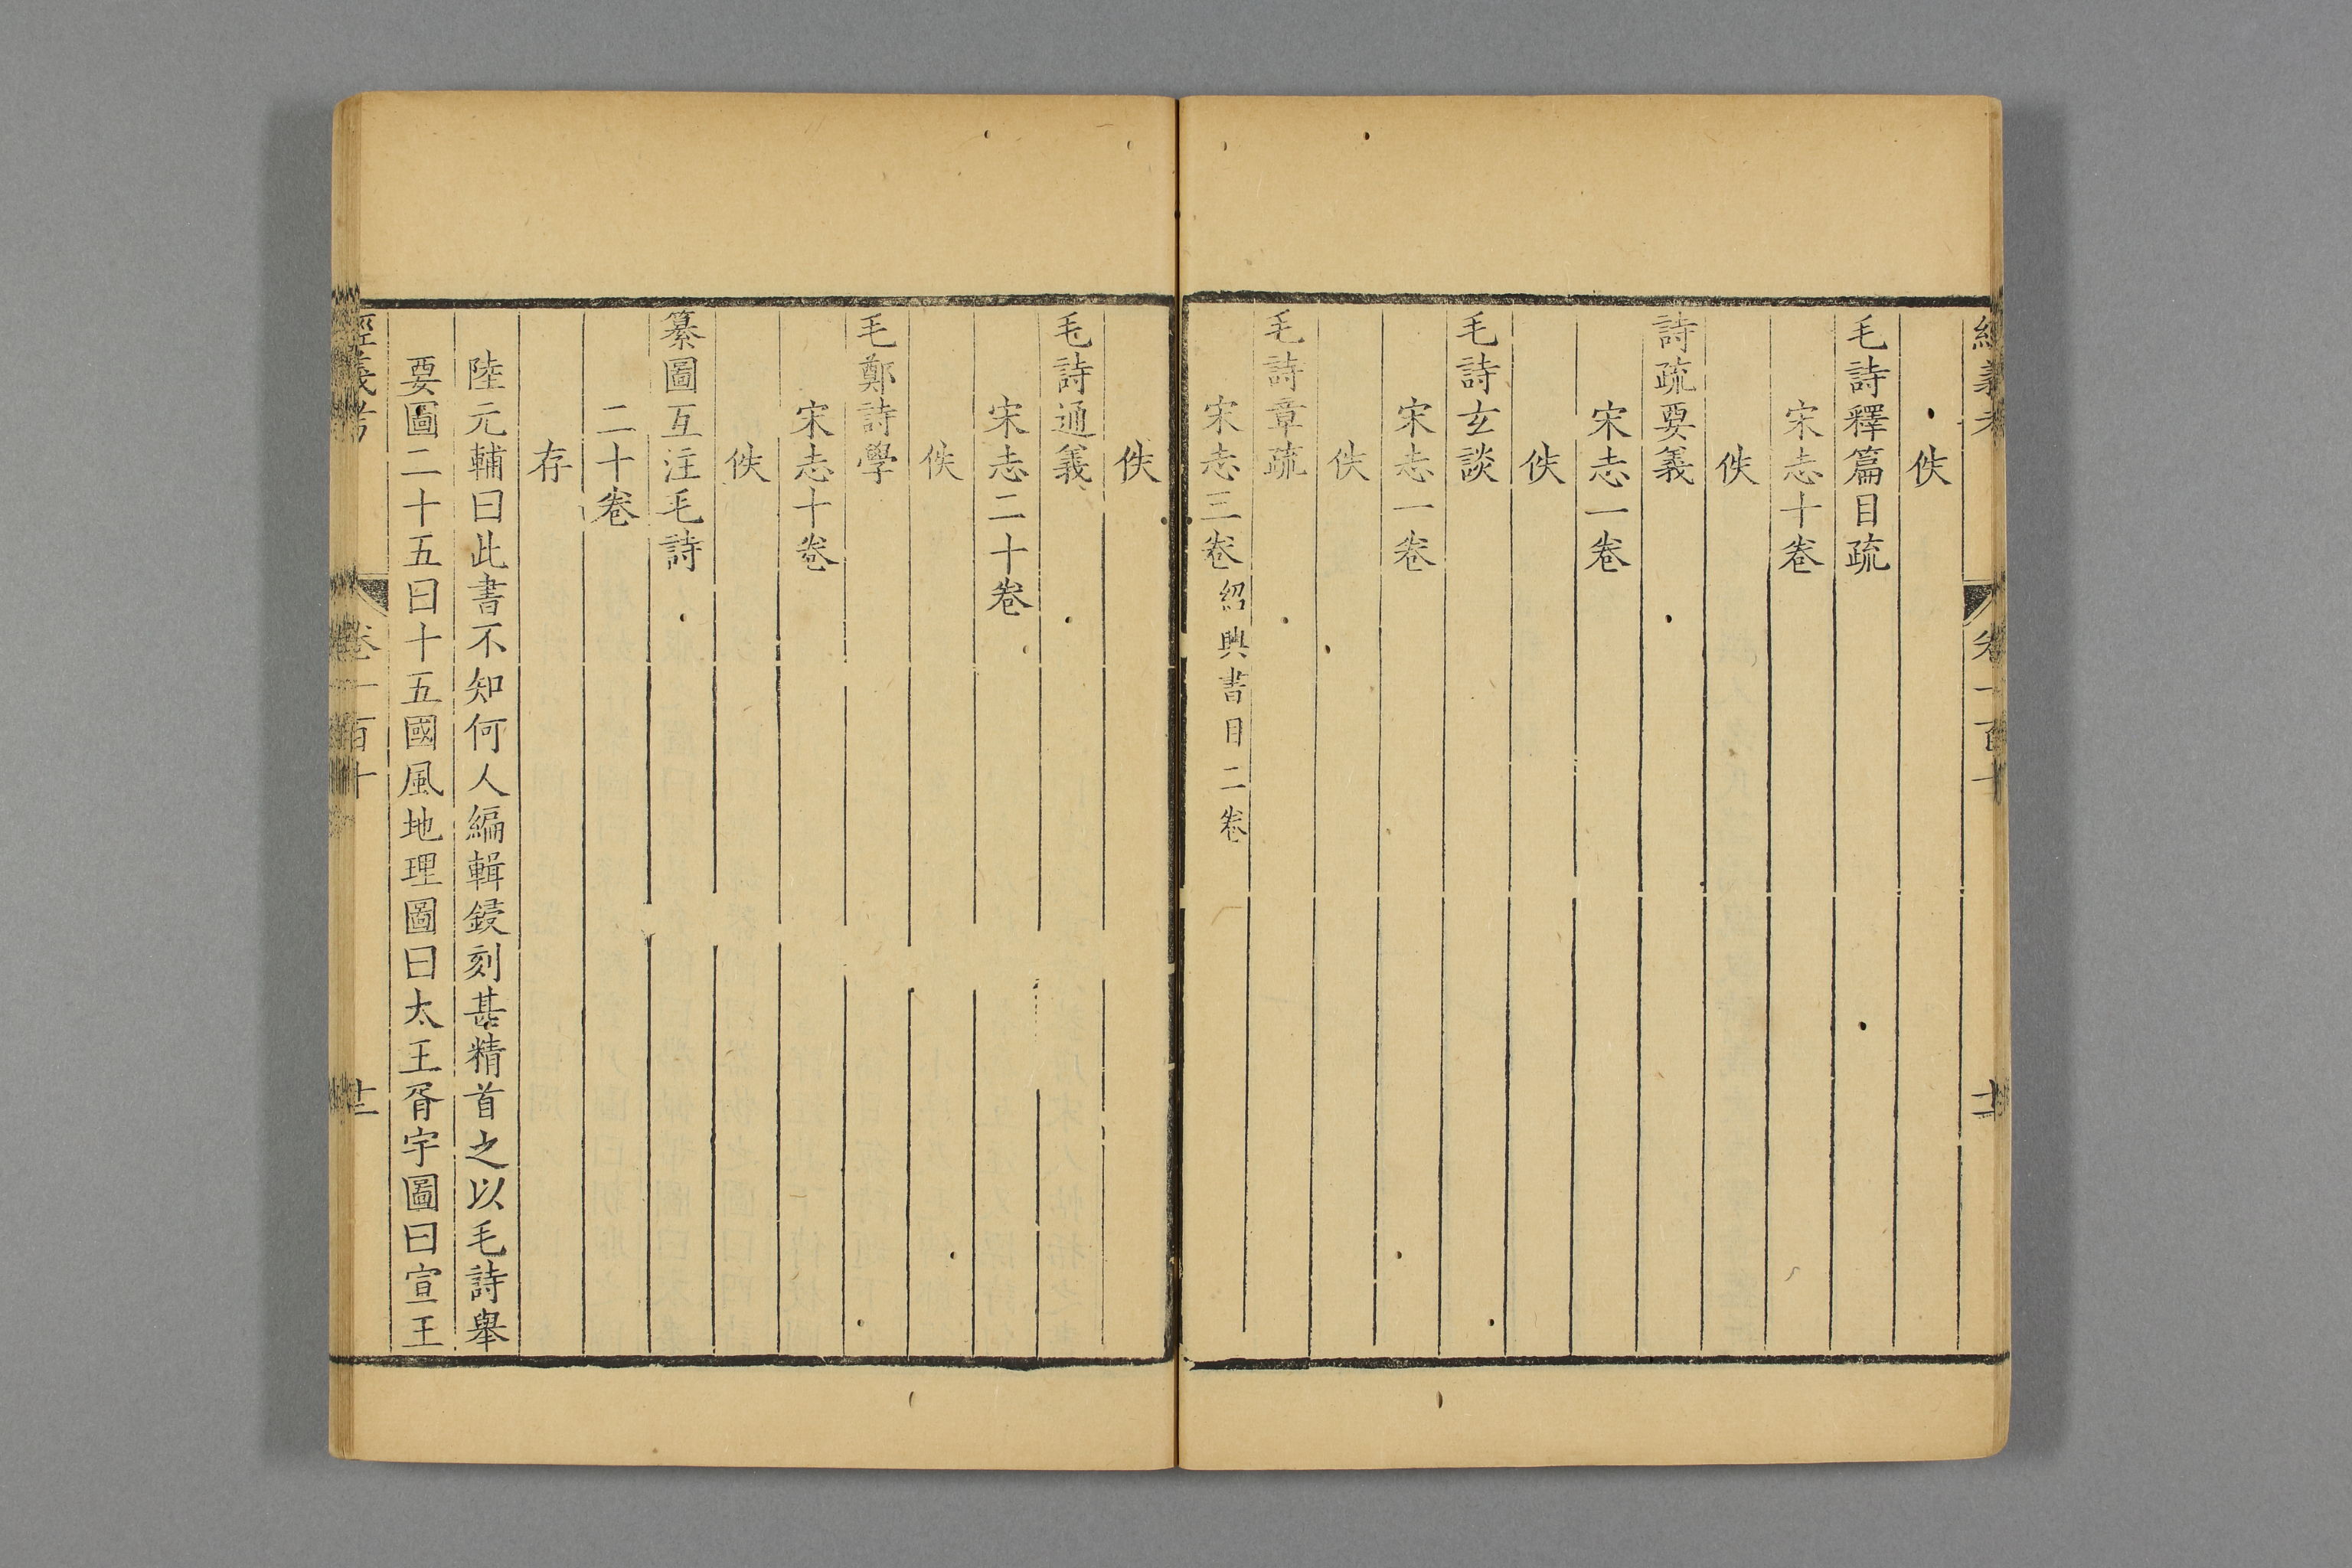 佚
毛詩釋篇目疏
宋志十卷
佚
詩疏要義
宋志一卷
佚
毛詩玄談
宋志一卷
佚
毛詩章疏
宋志三卷紹興書目二卷
佚
毛詩通義
宋志二十卷
佚
毛鄭詩學
宋志十卷
佚
纂圖互注毛詩
二十卷
存
陸元輔曰此書不知何人編輯鋟刻甚精首之以毛詩舉
要圖二十五曰十五國風地理圖曰太王胥宇圖曰宣王
經義考 卷一百十